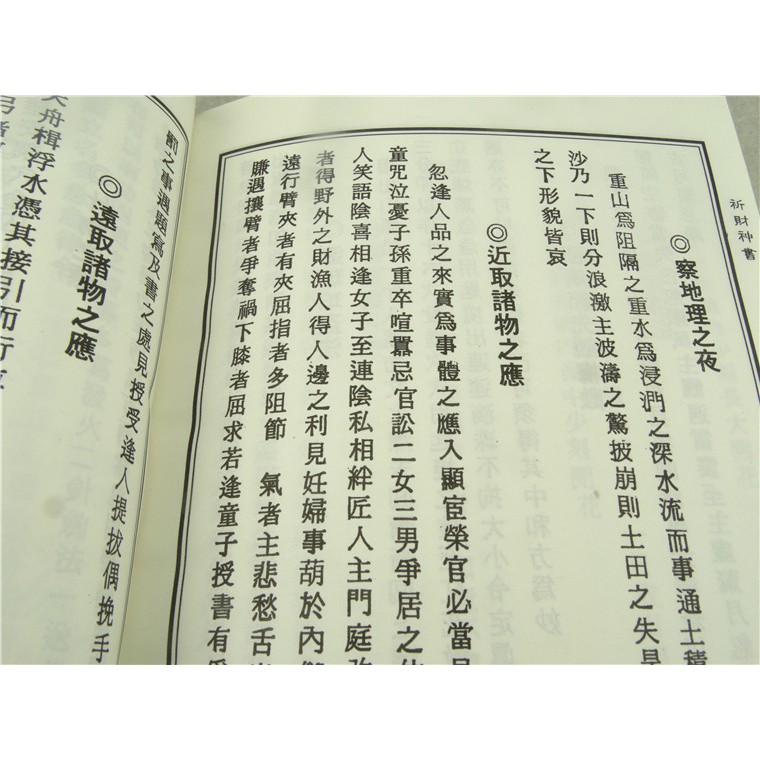 祈財神書
◎察地理之夜
重山為阻隔之重水為浸潤之深水流而事通土積
沙乃一下則分浪激主波濤之驚披崩則土田之失旱
之下形貌皆哀
◎近取諸物之應
忽逢人品之來實為事體之應入顯宦榮官必當
童咒泣憂子孫重卒喧囂忌官訟二女三男爭居之
人笑語陰喜相逢女子至連陰私相絆匠人主門庭
者得野外之財漁人得人邊之利見妊婦事葫於內
遠行臂夾者有夾屈指者多阻節　氣者主悲愁舌
賺遇攘臂者爭奪禍下膝者屈求若逢童子授書有
之事遇題寫及書之處見授受逢人提拔偶挽手
◎遠取諸物之應
舟楫浮水憑其接引而行